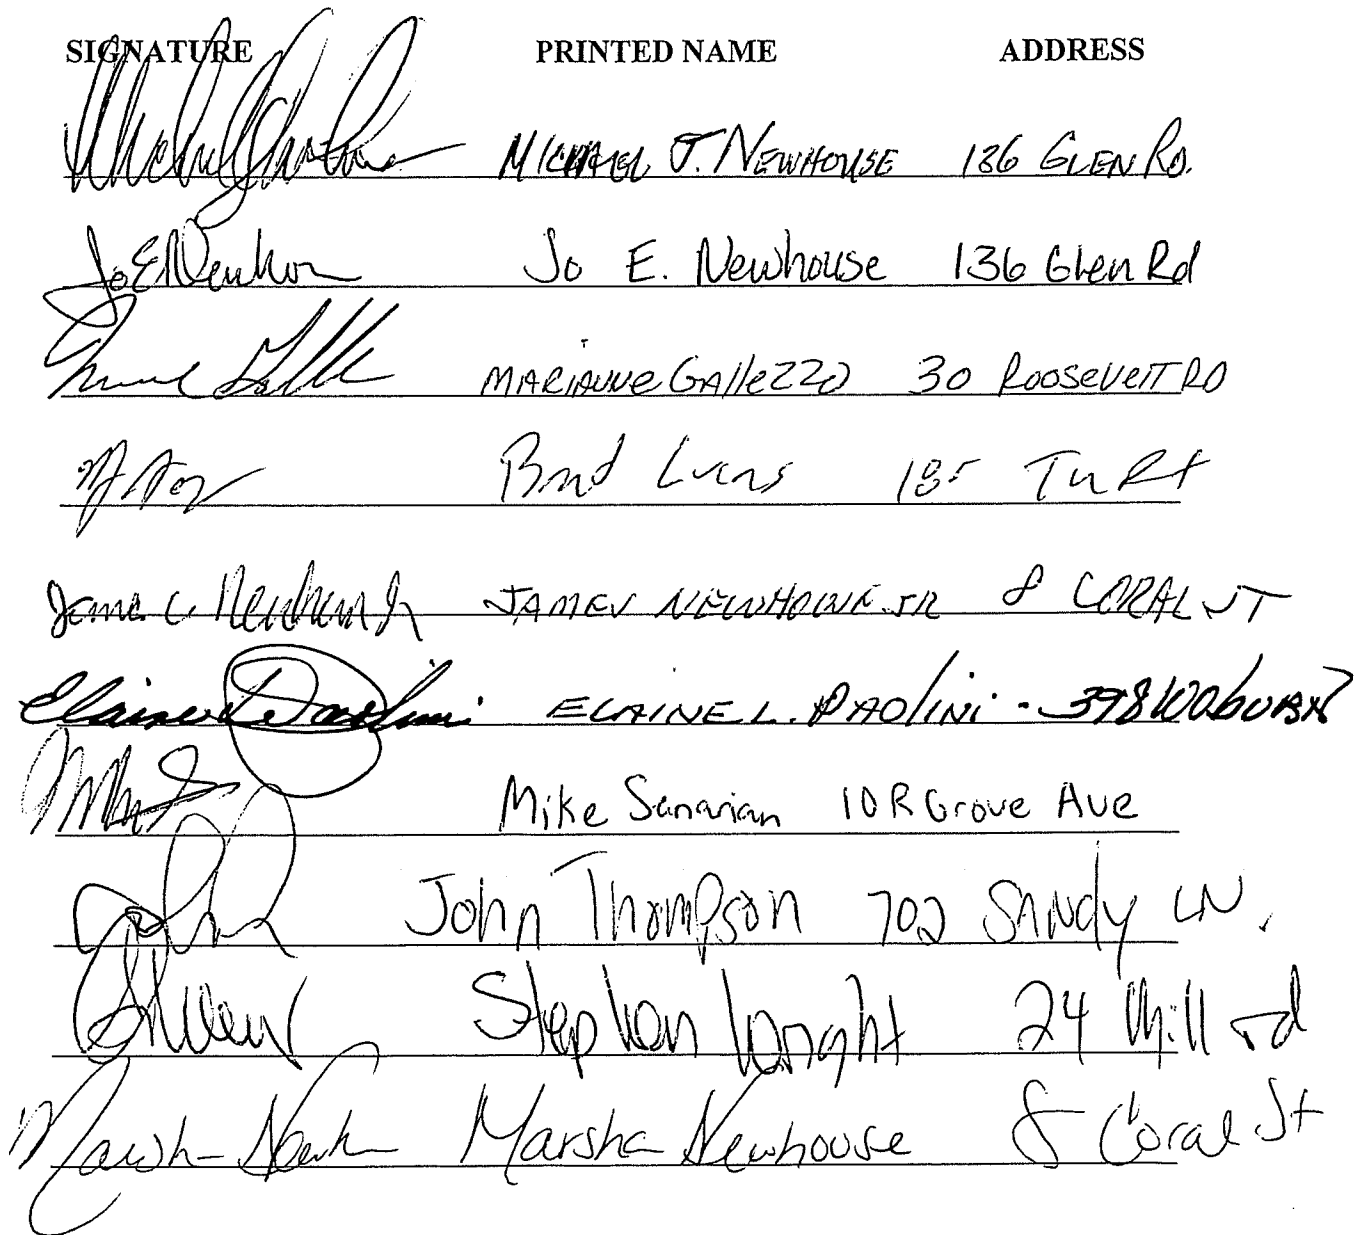 SIGNATURE PRINTED NAME ADDRESS
MICHAEL J. NEWHOUSE 136 GLEN RD.
Jo E Newhou Jo E. Newhouse 136 Glen Rd
MARiANNe GAlleZZO 30 RooseveltRD
Brad Lucas 185
James C Newhouse Jr JAMES NEWHOUSE JR 8 CORAL ST
Elaine L Paolini ELAINE L. PAOlini - 398 WObURN
Mike Sanarian 10R Grove Ave
John Thompson 702 SANdy LN.
Stephen Wright 24 Mill rd
Marsha Newhouse 8 Coral St